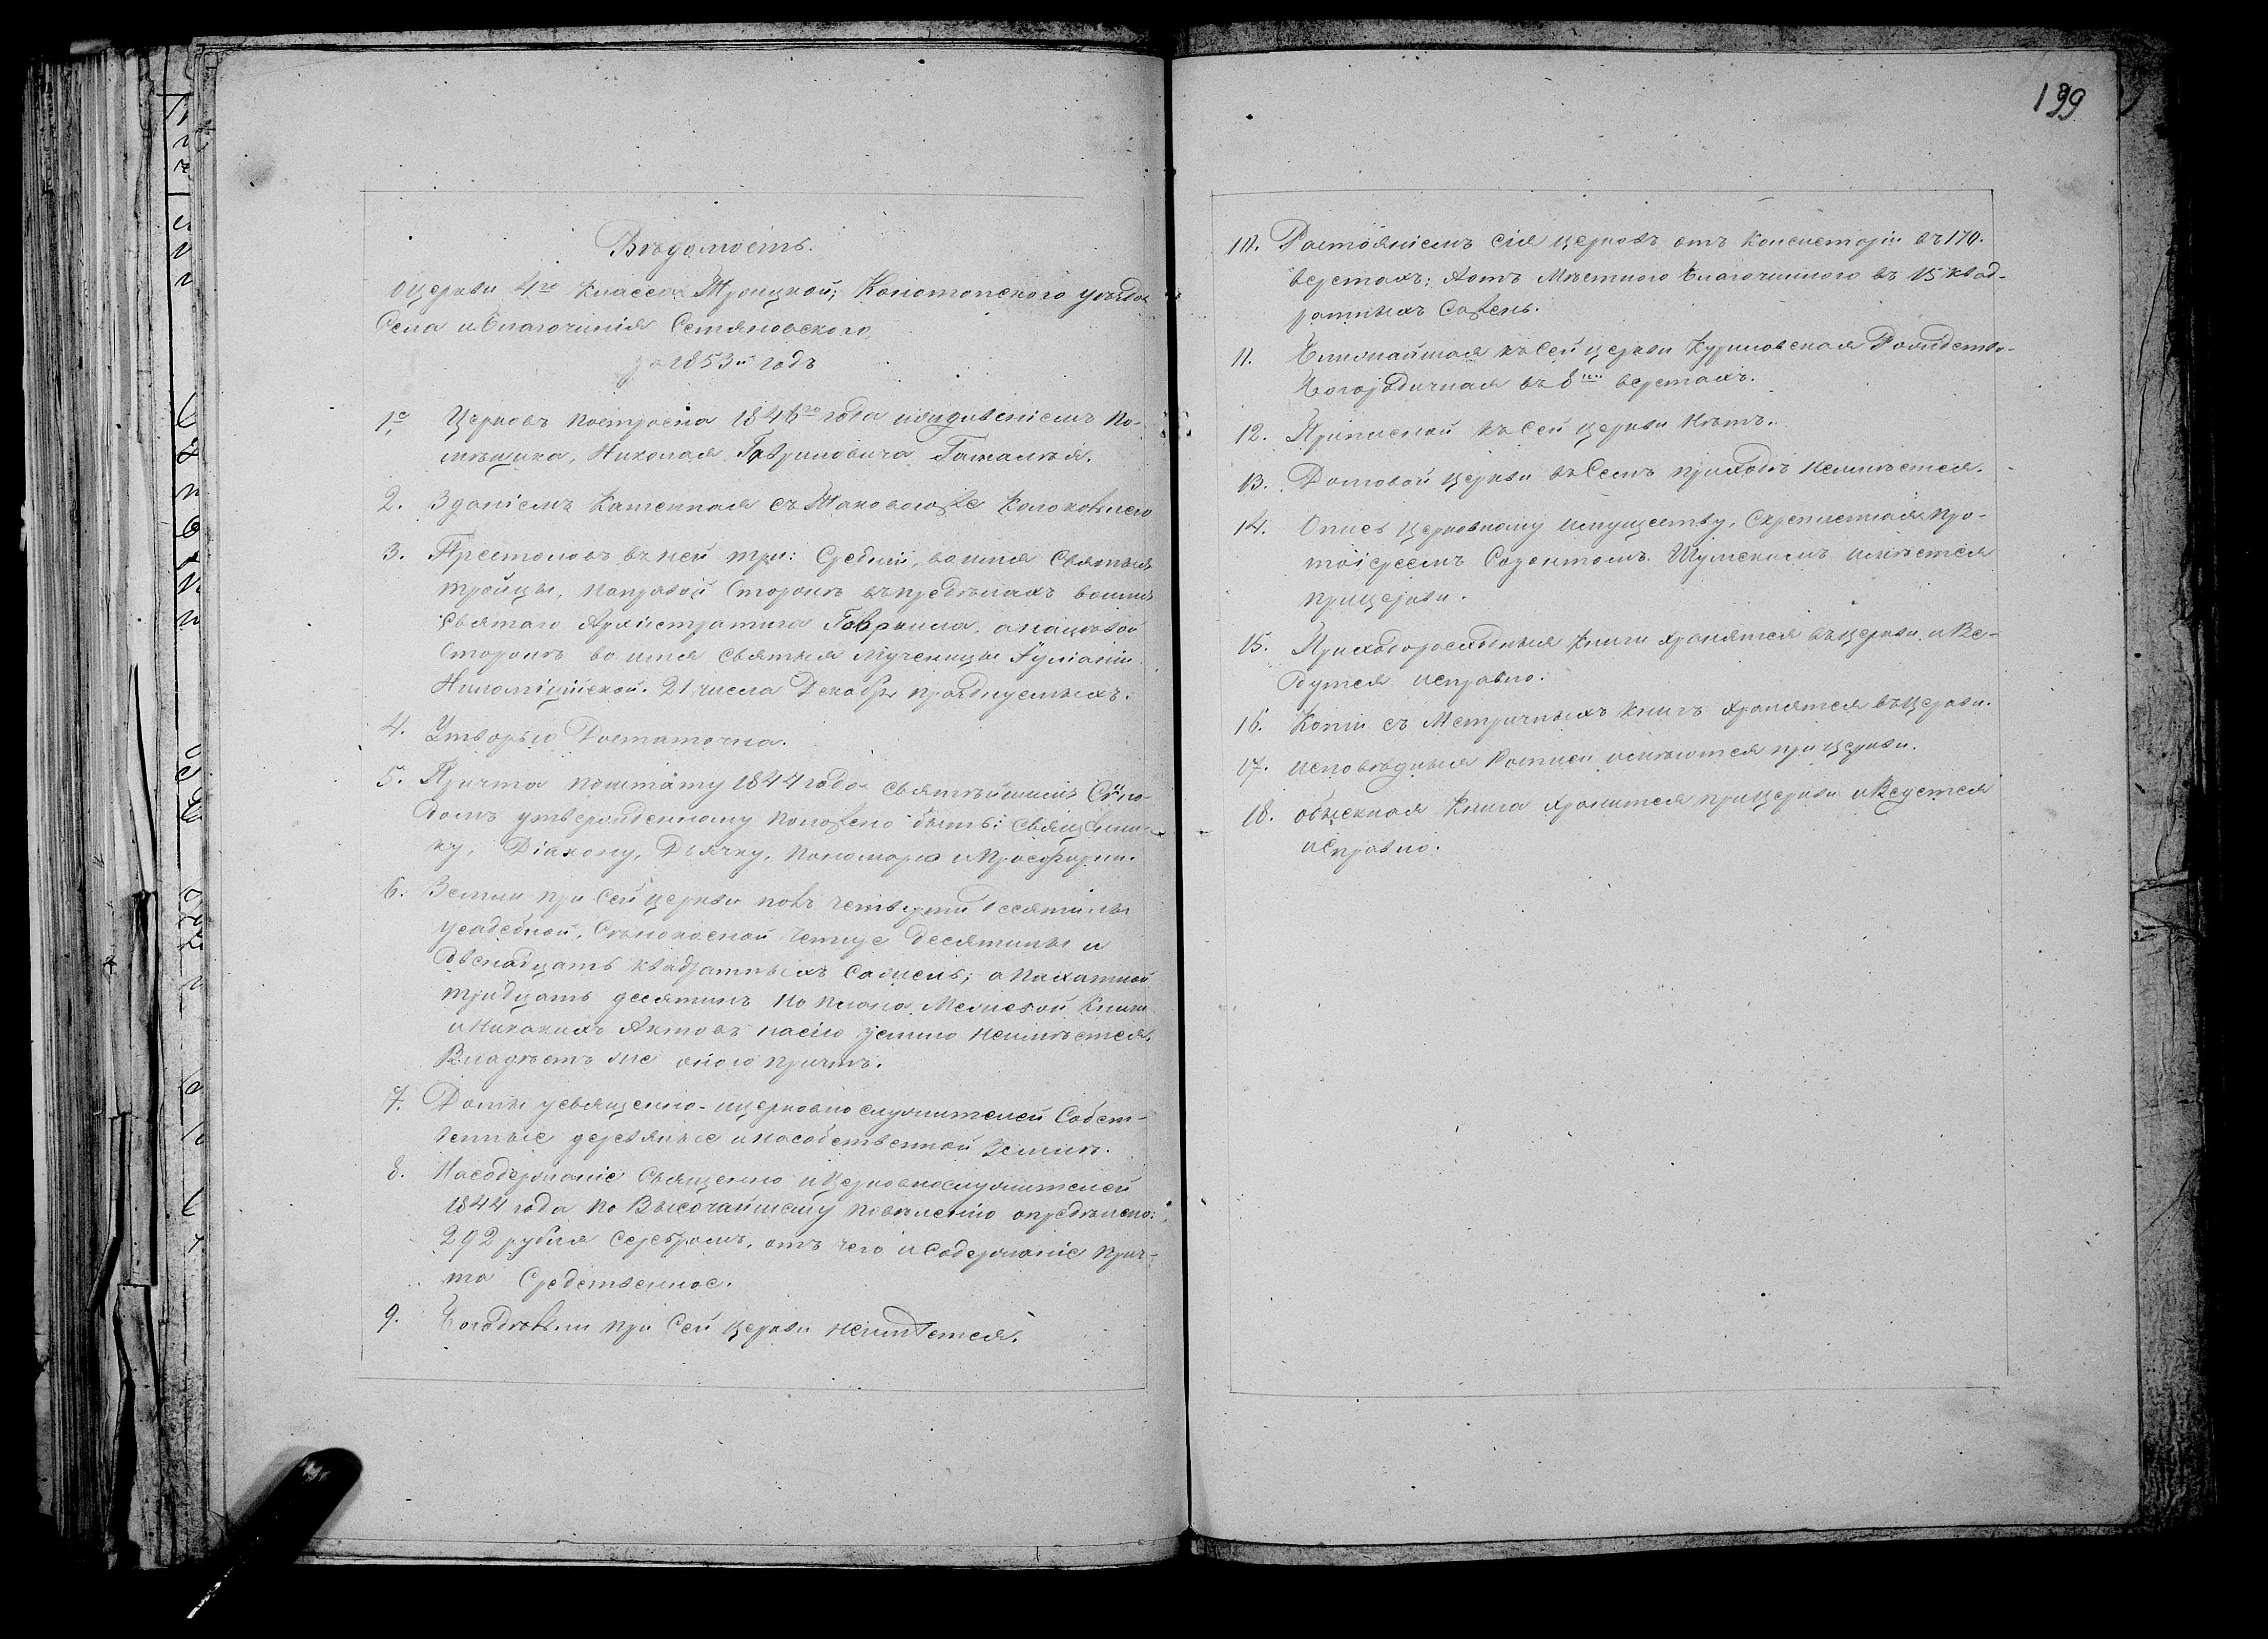 199
Вѣдомость.
О церкви 4го класса Троицкой; Конотопского уѣзда
Села и Благочинія Сѣмяновского,
за 1853й годъ
1е Церковь построена 1846го года иждивеніемъ По-
мѣщика, Николая Гавриловича Гамалѣя.
2. Зданіемъ Каменная съ Таковоюже Колокольнею
3. Престоловъ въ ней три: Средній, во имя Святыя
Тройцы, на правой Сторонѣ въ предѣлахъ во имя
Святаго Архистратига Гавриила, а на лѣвой
Сторонѣ во имя Святыя Мученицы Іуліаніи
Никомидійской. 21 числа Декабря празднуемыхъ.
4. Утварью Достаточна.
5. Причта по штату 1844 года Святѣйшимъ Сѵно-
домъ утвержденному положено быть: Священни-
ку, Діакону, Дьячку, Пономарю и Просфирни.
6. Земли при Сей церкви полъ четверти Десятины
усадебной, Сѣнокосной Четыре Десятины и
Двенадцать квадратныхъ Сажень; а Пахатной
Тридцать десятинъ но плана Межевой Книги
и Никакихъ Актовъ на сію землю неимѣется.
Владѣетъ же оною причтъ.
7. Домы у священно-и церковнослужителей Собст-
венные деревяные и на собственной Землѣ.
8. На содержаніе Священно и Церковнослужителей
1844 года по Высочайшему повелѣнію опредѣлено:
292 рубля Серебромъ, отъ чего и Содержаніе Прич-
та Средственное.
9. Богодѣльни при Сей церкви неимѣется.
10. Растояніемъ сія церковь отъ Консисторіи въ 170.
верстахъ; А отъ Мѣстного Благочинного въ 15 квад-
ратныхъ Сажень.
11. Ближайшая къ Сей церкви Куриловская Рождество-
Богородичная въ 8ми верстахъ.
12. Приписной къ Сей церкви Нѣтъ.
13. Домовой церкви въ Семъ приходѣ неимѣется.
14. Опись церковному имуществу, Скрепленная Про-
тоіереемъ Созонтомъ Шумскимъ имѣется
при церкви.
15. Приходорасходныя Книги хранятся въ церкви и Ве-
дутся исправно.
16. Копіи съ Метричныхъ книгъ хранятся въ церкви.
17. исповѣдныя Росписи имѣются при церкви.
18. обыскная Книга хранится при Церкви и Ведется
исправно.